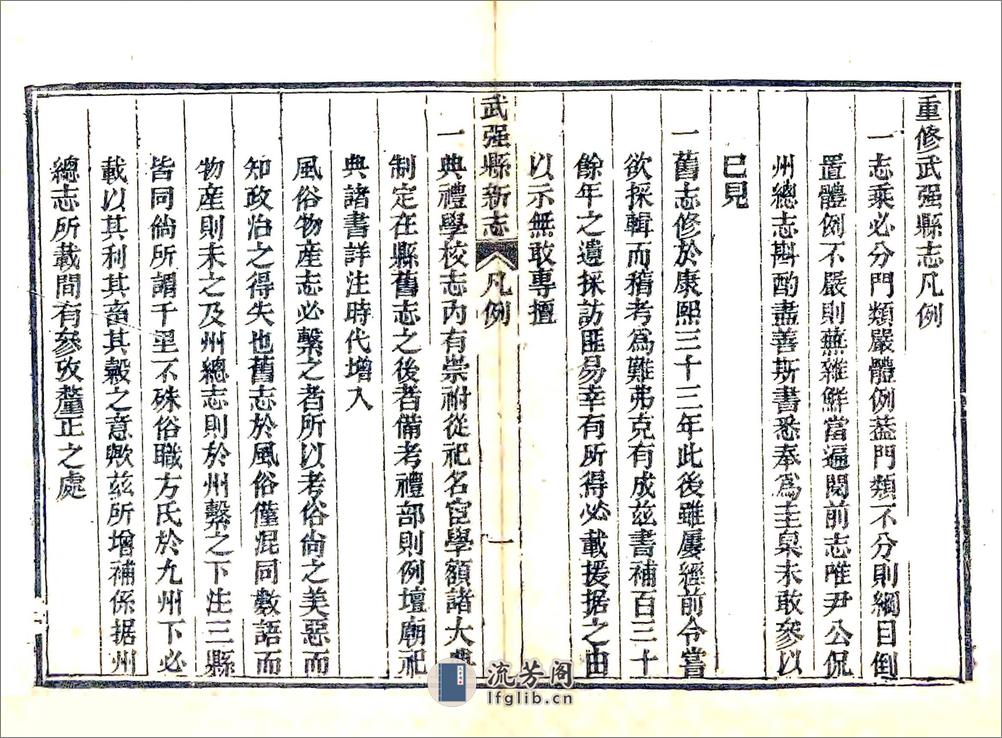 重修武强縣志凡例
一志乘必分門類嚴體例葢門類不分則綱目倒
置體例不嚴則蕪雜鮮當遍閱前志唯尹公侃
州總志斟酌盡善斯書悉奉為圭臬未敢參以
已見
一舊志修於康熙三十三年此後雖屢經前令嘗
欲採輯而稽考為難弗克有成兹書補百三十
餘年之遺採訪匪易幸有所得必載援据之由
以示無敢專擅
武强縣新志 凡例 一
一典禮學校志內有崇祔從祀名宦學額諸大典
制定在縣舊志之後者備考禮部則例壇廟祀
典諸書詳注時代增入
風俗物產志必繫之者所以考俗尚之美惡而
知政治之得失也舊志於風俗僅混同數語而
物產則未之及州總志則於州繫之下注三縣
皆同尙所謂千里不殊俗職方氏於九州下必
載以其利其畜其穀之意歟兹所增補係据州
總志所載間有參攷釐正之處
流芳阁
lfglib.cn